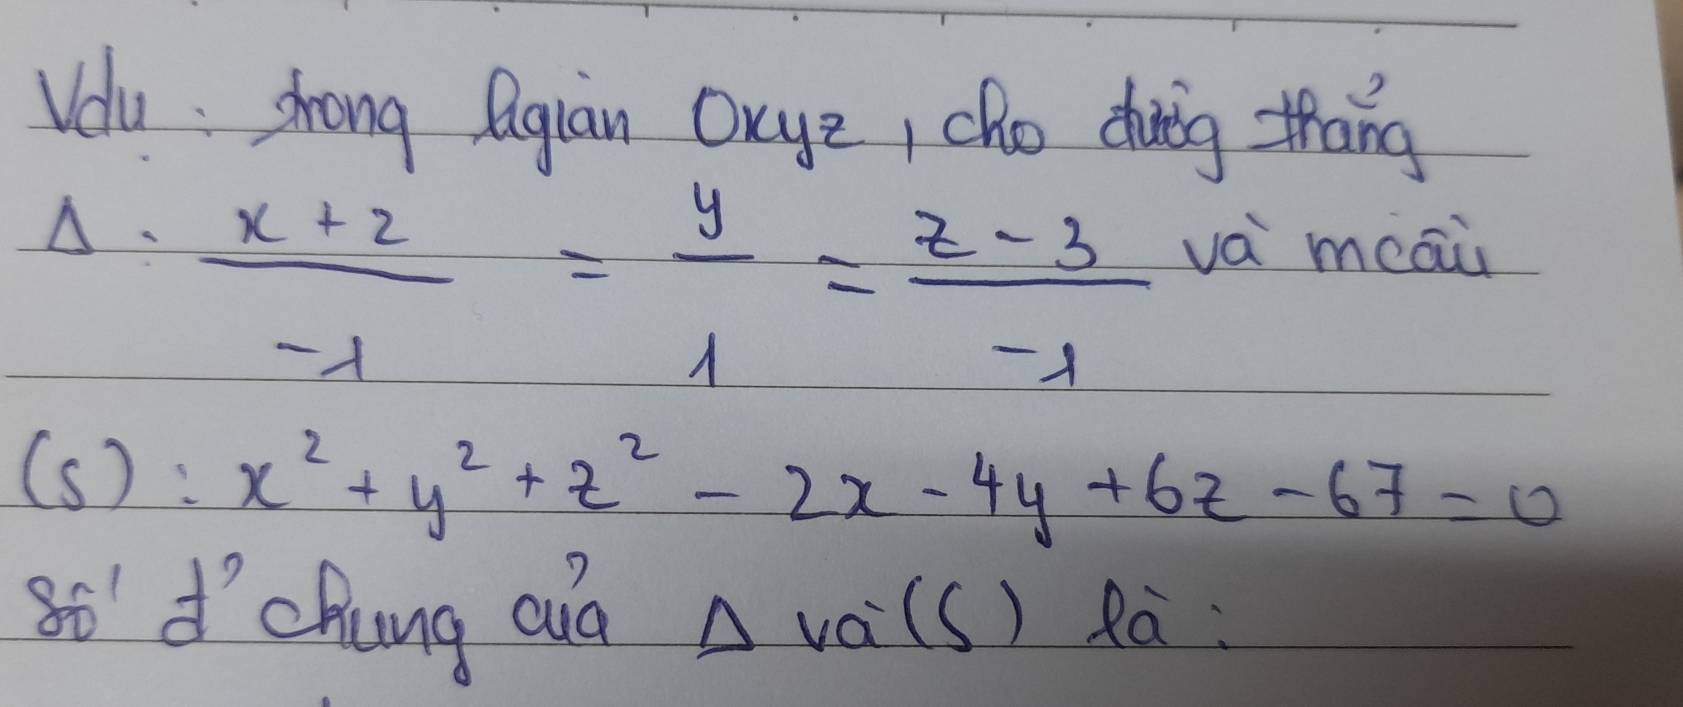 Vdụ : trong kgian Oxyz, cho đường thẳng
Δ : x + 2 / -1 = y / 1 = z - 3 / -1 và mcầu
(S) : x² + y² + z² - 2x - 4y + 6z - 67 = 0
Số đ' chung của Δ và (S) là :